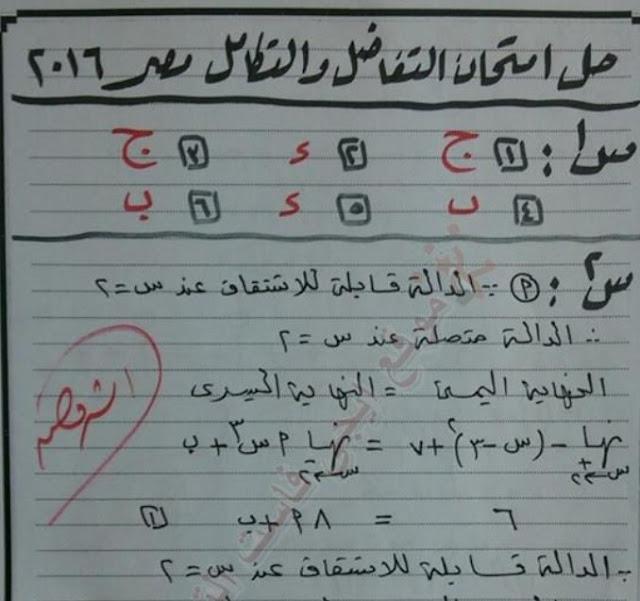 حل امتحان التفاضل والتكامل مصر ٢٠١٦
س١ : ١ ج ٢ ء ٣ ج
٤ ب ٥ ء ٦ ب
س٢ : (٩) ∵ الدالة قابلة للاشتقاق عند س = ٢
∴ الدالة متصلة عند س = ٢
النهاية اليمنى = النهاية اليسرى
نها -(س-٣)٢ + ٧ = نها ٩ س٣ + ب
س←٢+ س←٢-
٦ = ٨ ٩ + ب ١
∵ الدالة قابلة للاشتقاق عند س = ٢
موقع ايجى فاست